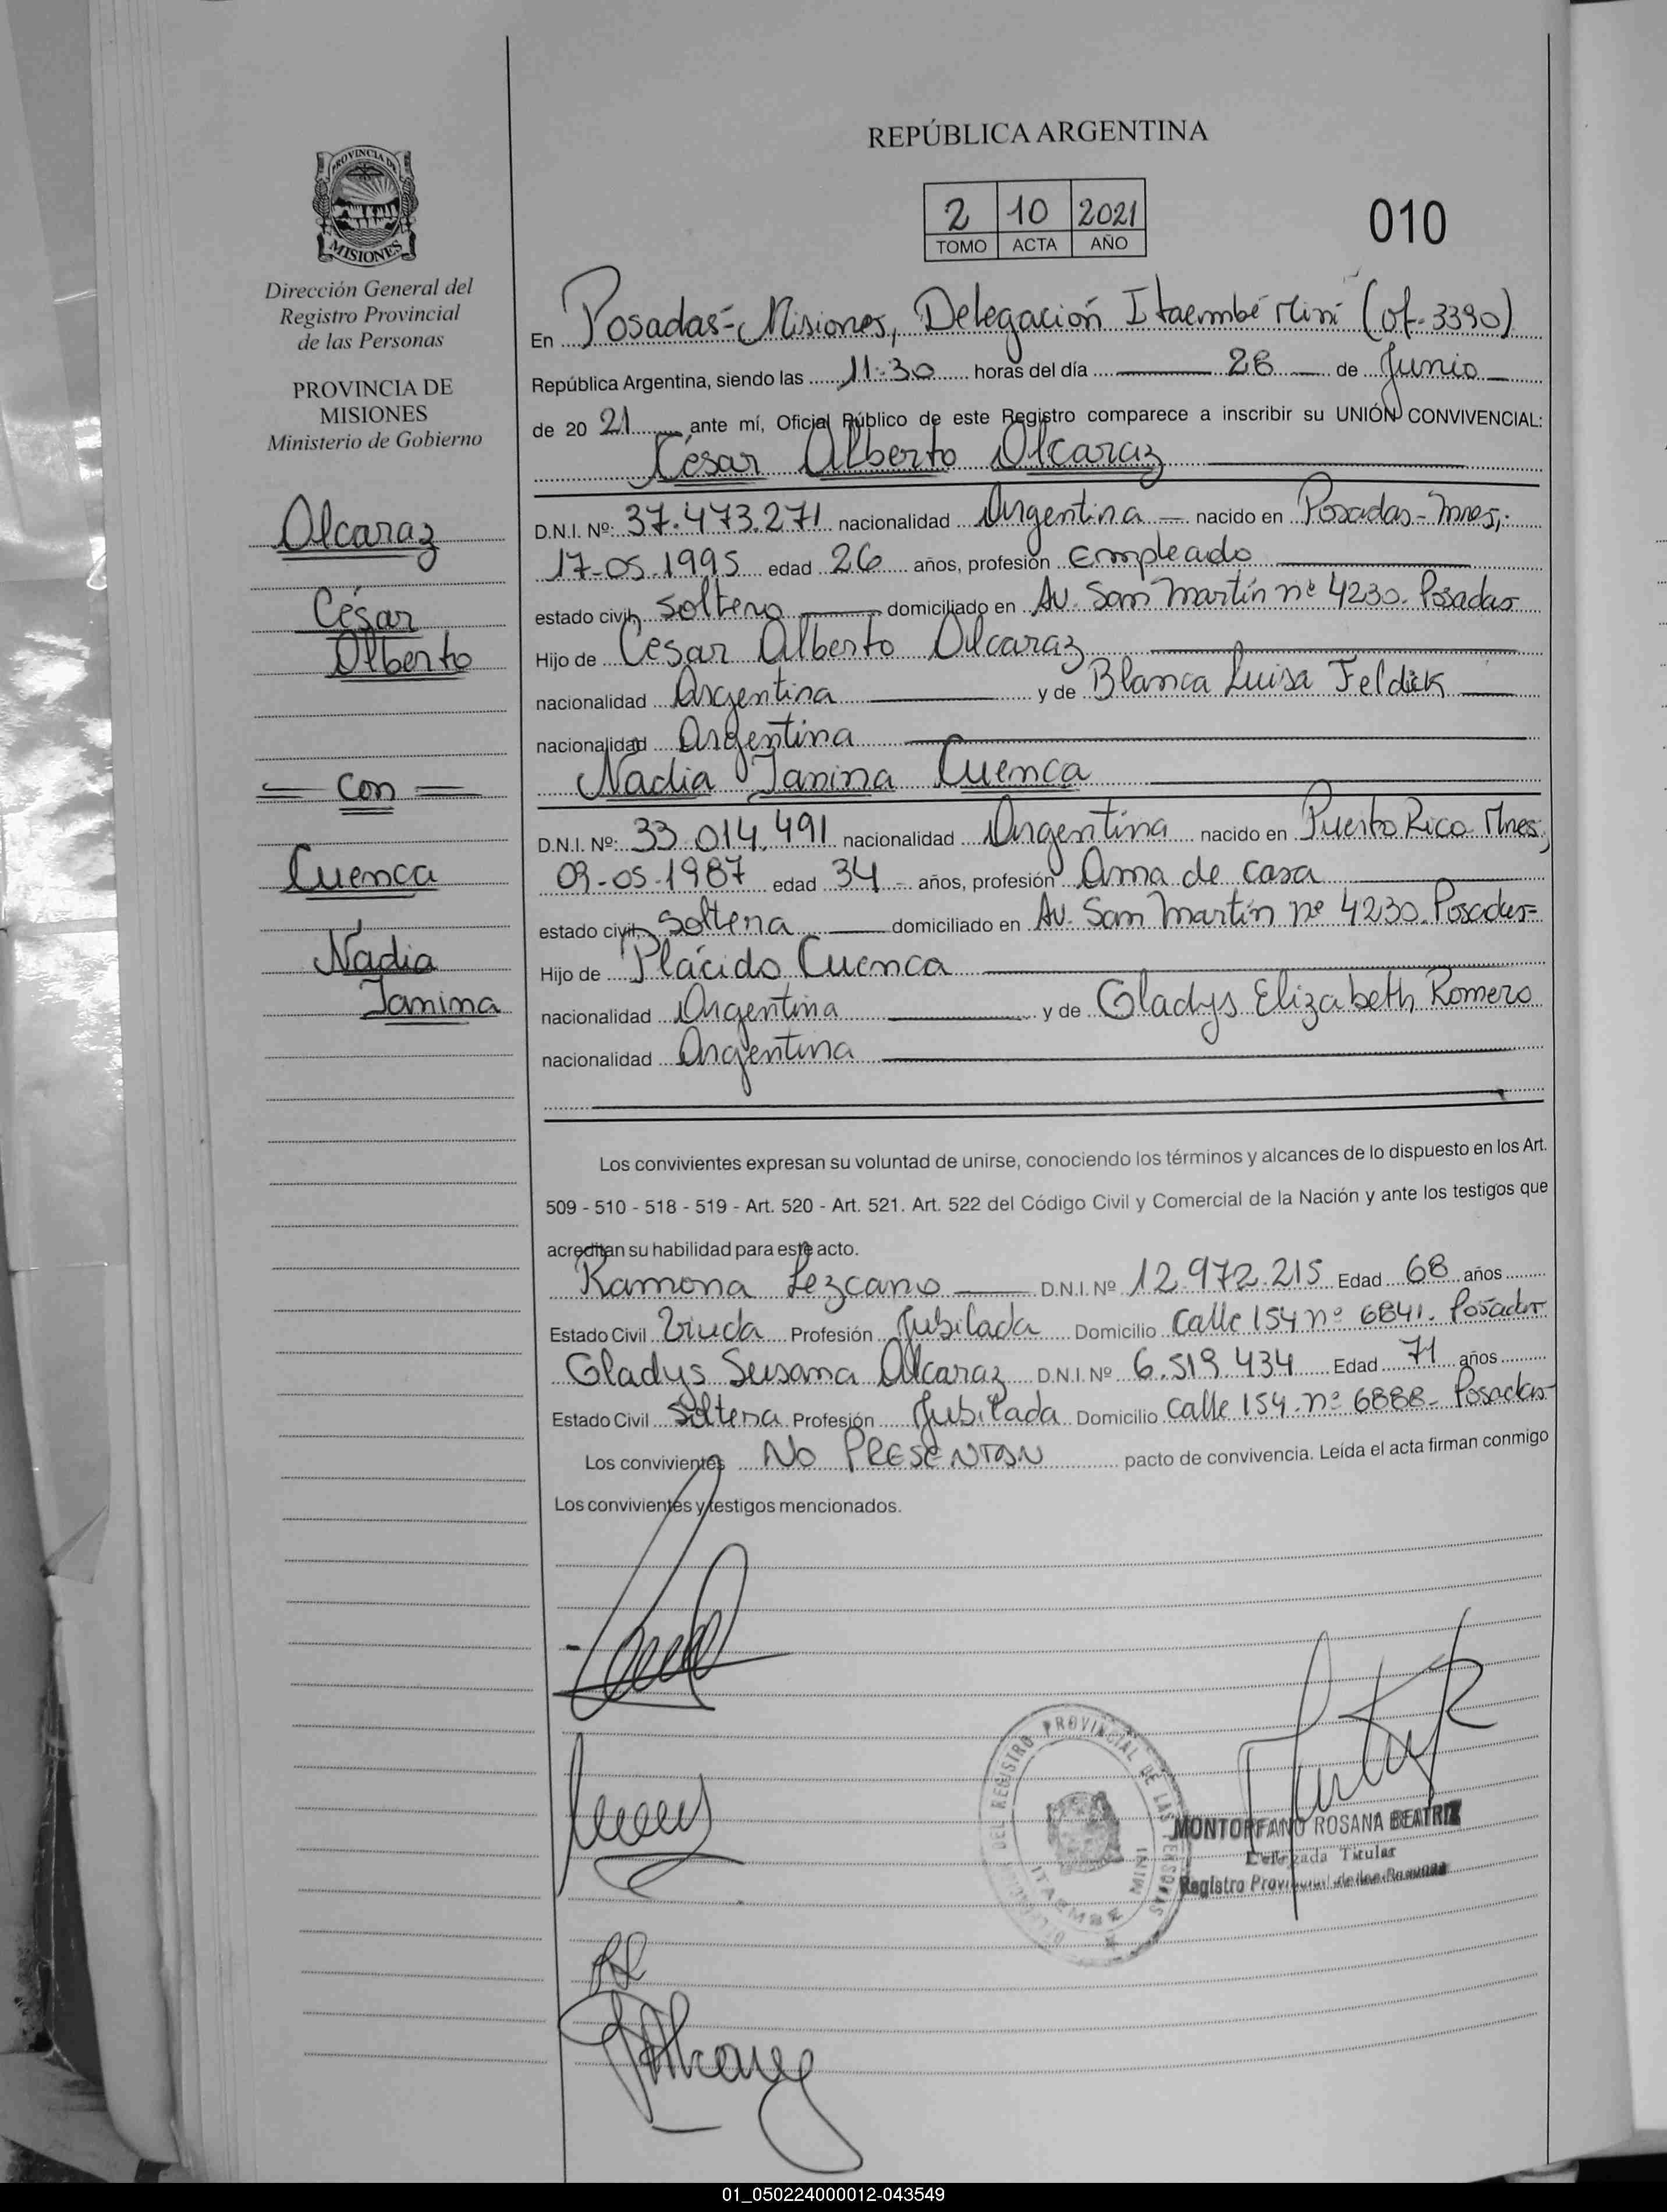 REPÚBLICA ARGENTINA
2 10 2021
TOMO ACTA AÑO
010
PROVINCIA DE
MISIONES
Dirección General del
Registro Provincial
de las Personas
PROVINCIA DE
MISIONES
Ministerio de Gobierno
Alcaraz
César
Alberto
= con =
Cuenca
Nadia
Janina
En Posadas-Misiones, Delegación Itaembé Miní (of. 3390)
República Argentina, siendo las 11:30 horas del día 28 de Junio
de 20 21 ante mí, Oficial Público de este Registro comparece a inscribir su UNIÓN CONVIVENCIAL:
César Alberto Alcaraz
D.N.I. Nº: 37.473.271 nacionalidad Argentina nacido en Posadas-Mnes,
17-05-1995 edad 26 años, profesión Empleado
estado civil, soltero domiciliado en Av. San Martín nº 4230. Posadas
Hijo de César Alberto Alcaraz
nacionalidad Argentina y de Blanca Luisa Feldik
nacionalidad Argentina
Nadia Janina Cuenca
D.N.I. Nº: 33.014.491 nacionalidad Argentina nacido en Puerto Rico Mnes,
09-05-1987 edad 34 - años, profesión Ama de casa
estado civil, soltera domiciliado en Av. San Martín nº 4230. Posadas-
Hijo de Plácido Cuenca
nacionalidad Argentina y de Gladys Elizabeth Romero
nacionalidad Argentina
Los convivientes expresan su voluntad de unirse, conociendo los términos y alcances de lo dispuesto en los Art.
509 - 510 - 518 - 519 - Art. 520 - Art. 521. Art. 522 del Código Civil y Comercial de la Nación y ante los testigos que
acreditan su habilidad para este acto.
Ramona Lezcano D.N.I. Nº 12.972.215 Edad 68 años
Estado Civil Viuda Profesión Jubilada Domicilio Calle 154 nº 6841. Posadas
Gladys Susana Alcaraz D.N.I. Nº 6.519.434 Edad 71 años
Estado Civil Soltera Profesión Jubilada Domicilio Calle 154 nº 6888- Posadas-
Los convivientes NO PRESENTAN pacto de convivencia. Leída el acta firman conmigo
Los convivientes y testigos mencionados.
DEL REGISTRO PROVINCIAL DE LAS PERSONAS
ITAEMBE MINI
MONTORFANO ROSANA BEATRIZ
Delegada Titular
Registro Provincial de las Personas
01_050224000012-043549